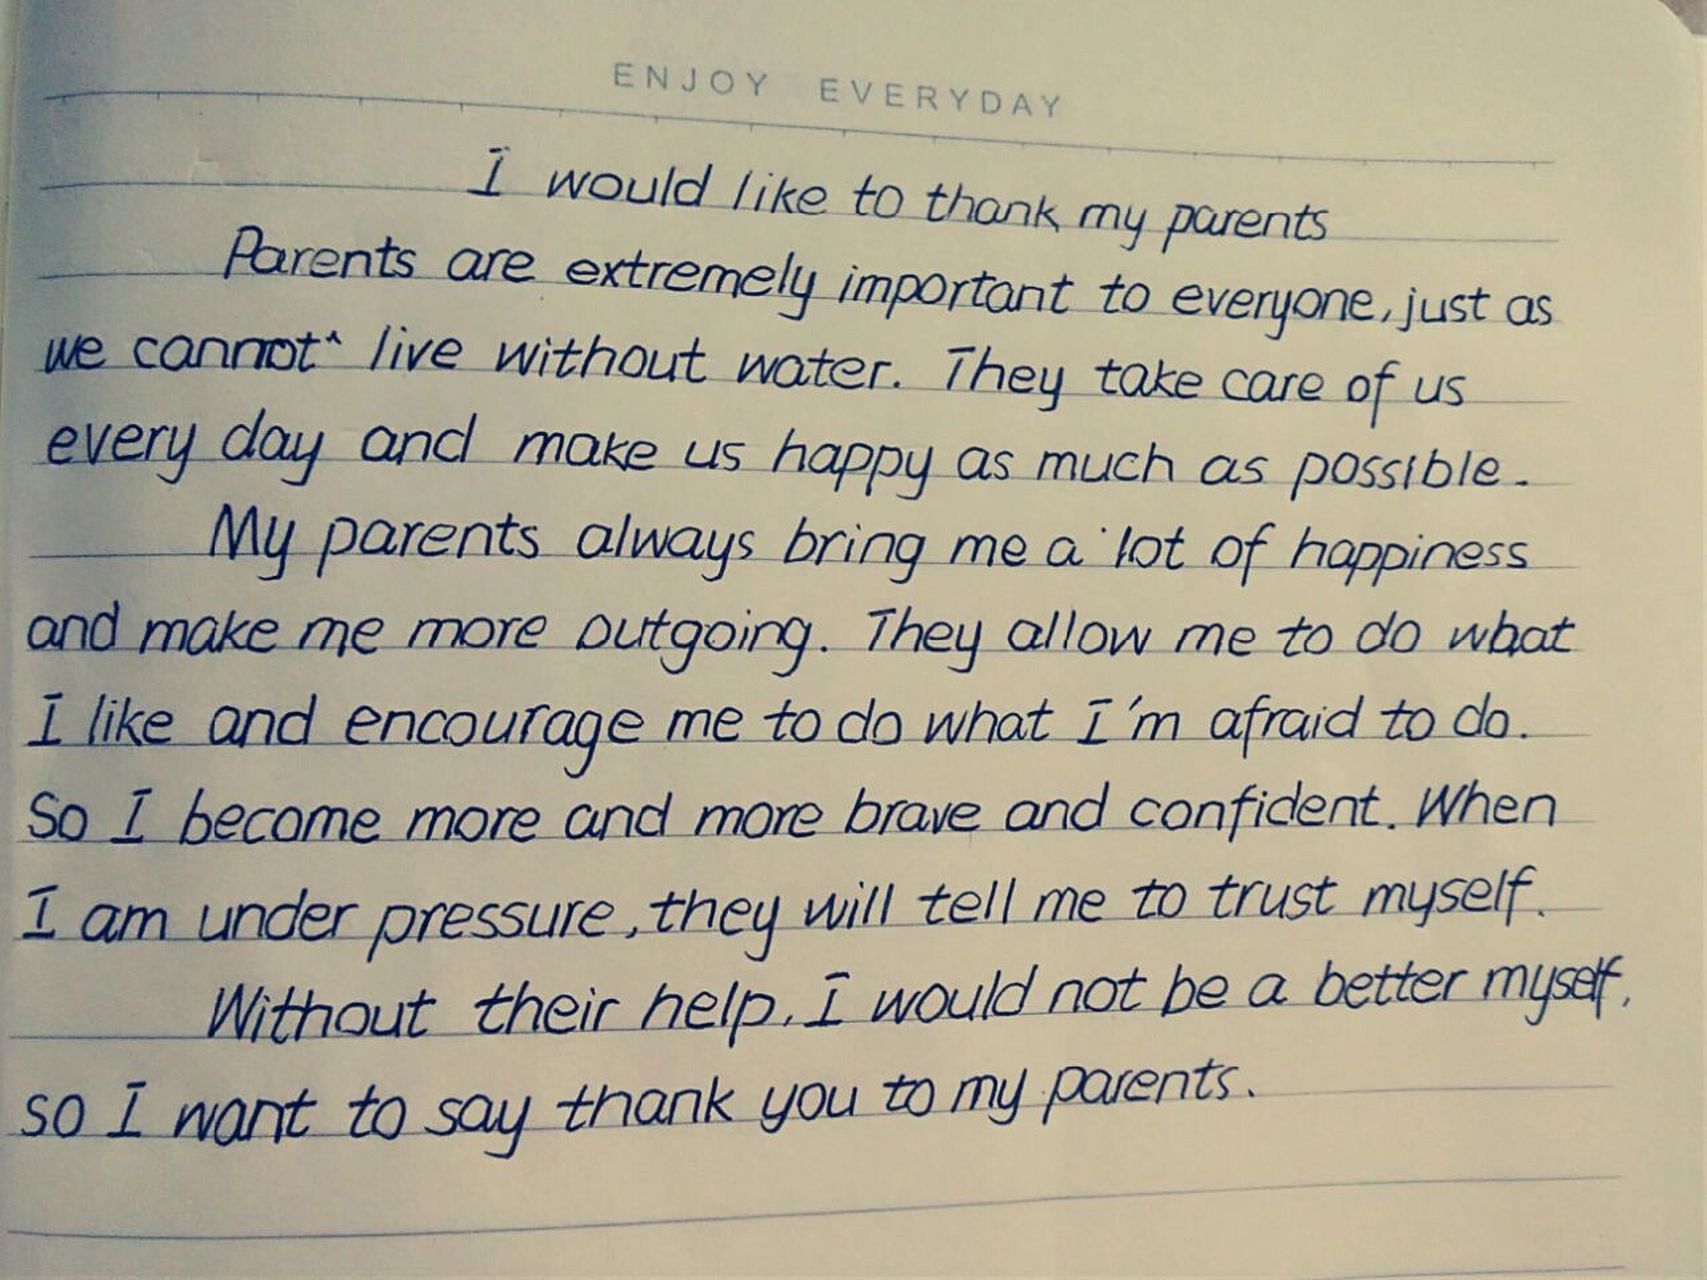 ENJOY EVERYDAY
I would like to thank my parents
Parents are extremely important to everyone, just as
we cannot live without water. They take care of us
every day and make us happy as much as possible.
My parents always bring me a lot of happiness
and make me more outgoing. They allow me to do what
I like and encourage me to do what I'm afraid to do.
So I become more and more brave and confident. When
I am under pressure, they will tell me to trust myself.
Without their help, I would not be a better myself,
so I want to say thank you to my parents.